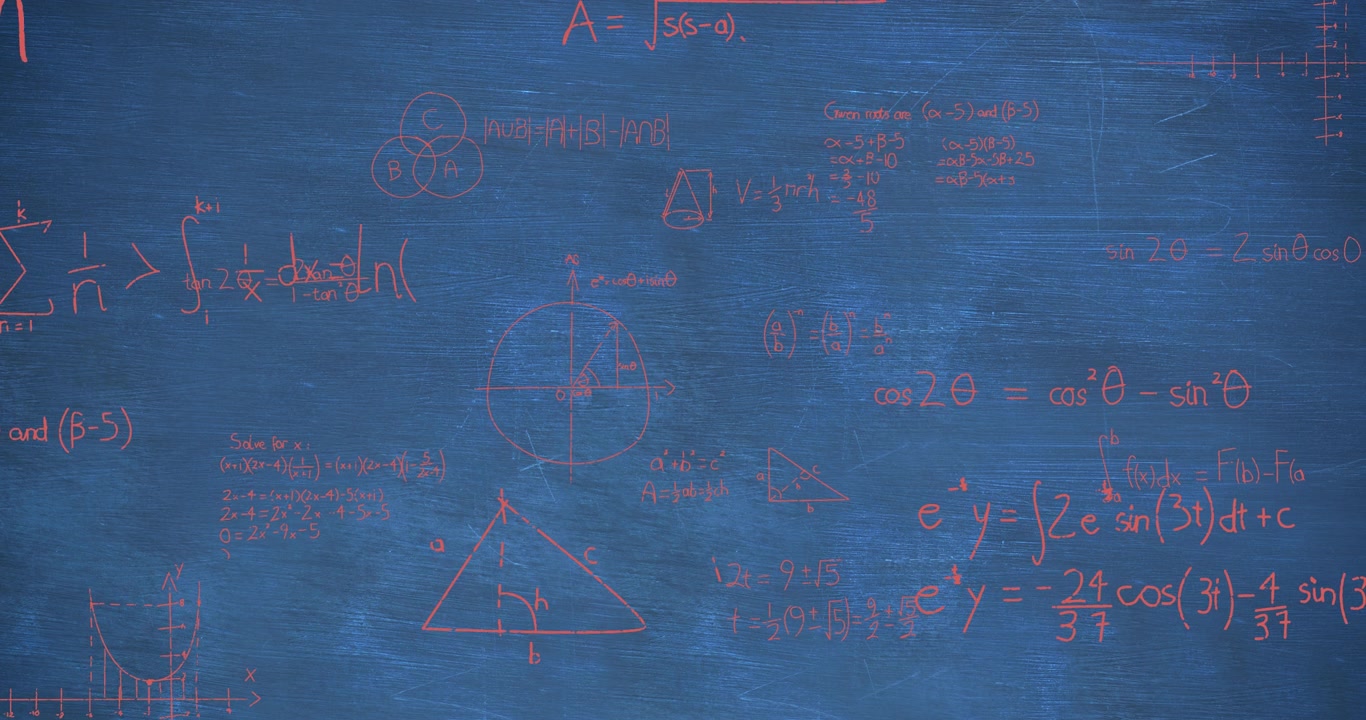 A = √s(s-a)
C
B A
|AUB|=|A|+|B|-|A∩B|
Given roots are (α-5) and (β-5)
α-5+β-5
=α+β-10
-48
5
(α-5)(β-5)
=αβ-5α-5β+25
=αβ-5(α+
V = 1/3 πr²h
h
sin 2θ = 2 sinθ cosθ
k
∑ 1/n > ∫ 1/x d ln(
n=1
k+1
tan 2θ = 2tanθ / 1-tan²θ
sinθ
O
(a/b)⁻ⁿ = (b/a)ⁿ = bⁿ/aⁿ
cos 2θ = cos²θ - sin²θ
and (β-5)
Solve for x:
(x+1)(2x-4)(1/(x+1)) = (x+1)(2x-4)(1-5/(2x-4))
2x-4=(x+1)(2x-4)-5(x+1)
2x-4=2x²-2x-4-5x-5
0=2x²-9x-5
a²+b²=c²
A=½ab=½ch
a c h b
∫ f(x)dx = F(b)-F(a
b
a
y = ∫2e sin(3t)dt + c
a c
h
b
2t = 9±√5
t = ½(9±√5) = 9/2 ± √5/2
y = -24/37 cos(3t) - 4/37 sin(3
y
x